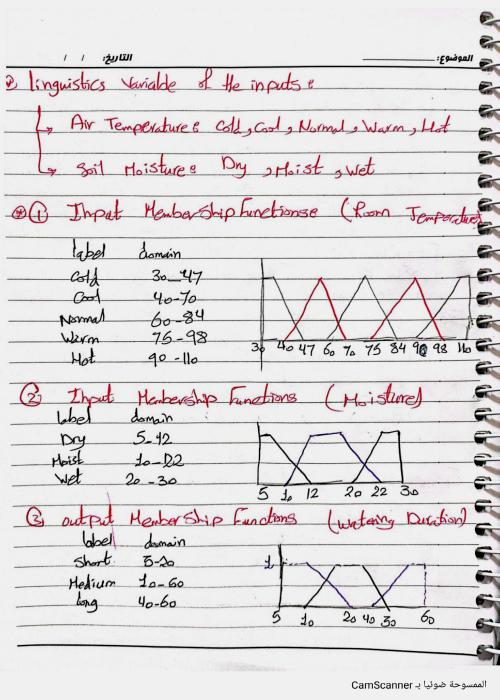 الموضوع: التاريخ: / /
linguistics variable of the inputs:
Air Temperature: Cold, Cool, Normal, Warm, Hot
Soil Moisture: Dry, Moist, Wet
① Input Membership Functions: (Room Temperature)
label domain
Cold 30-47
Cool 40-70
Normal 60-84
Warm 75-98
Hot 90-110
30 40 47 60 70 75 84 90 98 110
② Input Membership Functions (Moisture)
label domain
Dry 5-12
Moist 10-22
Wet 20-30
5 10 12 20 22 30
③ output Membership Functions (Watering Duration)
label domain
Short 5-20
Medium 10-60
long 40-60
1
5 10 20 40 30 60
الممسوحة ضوئيا بـ CamScanner